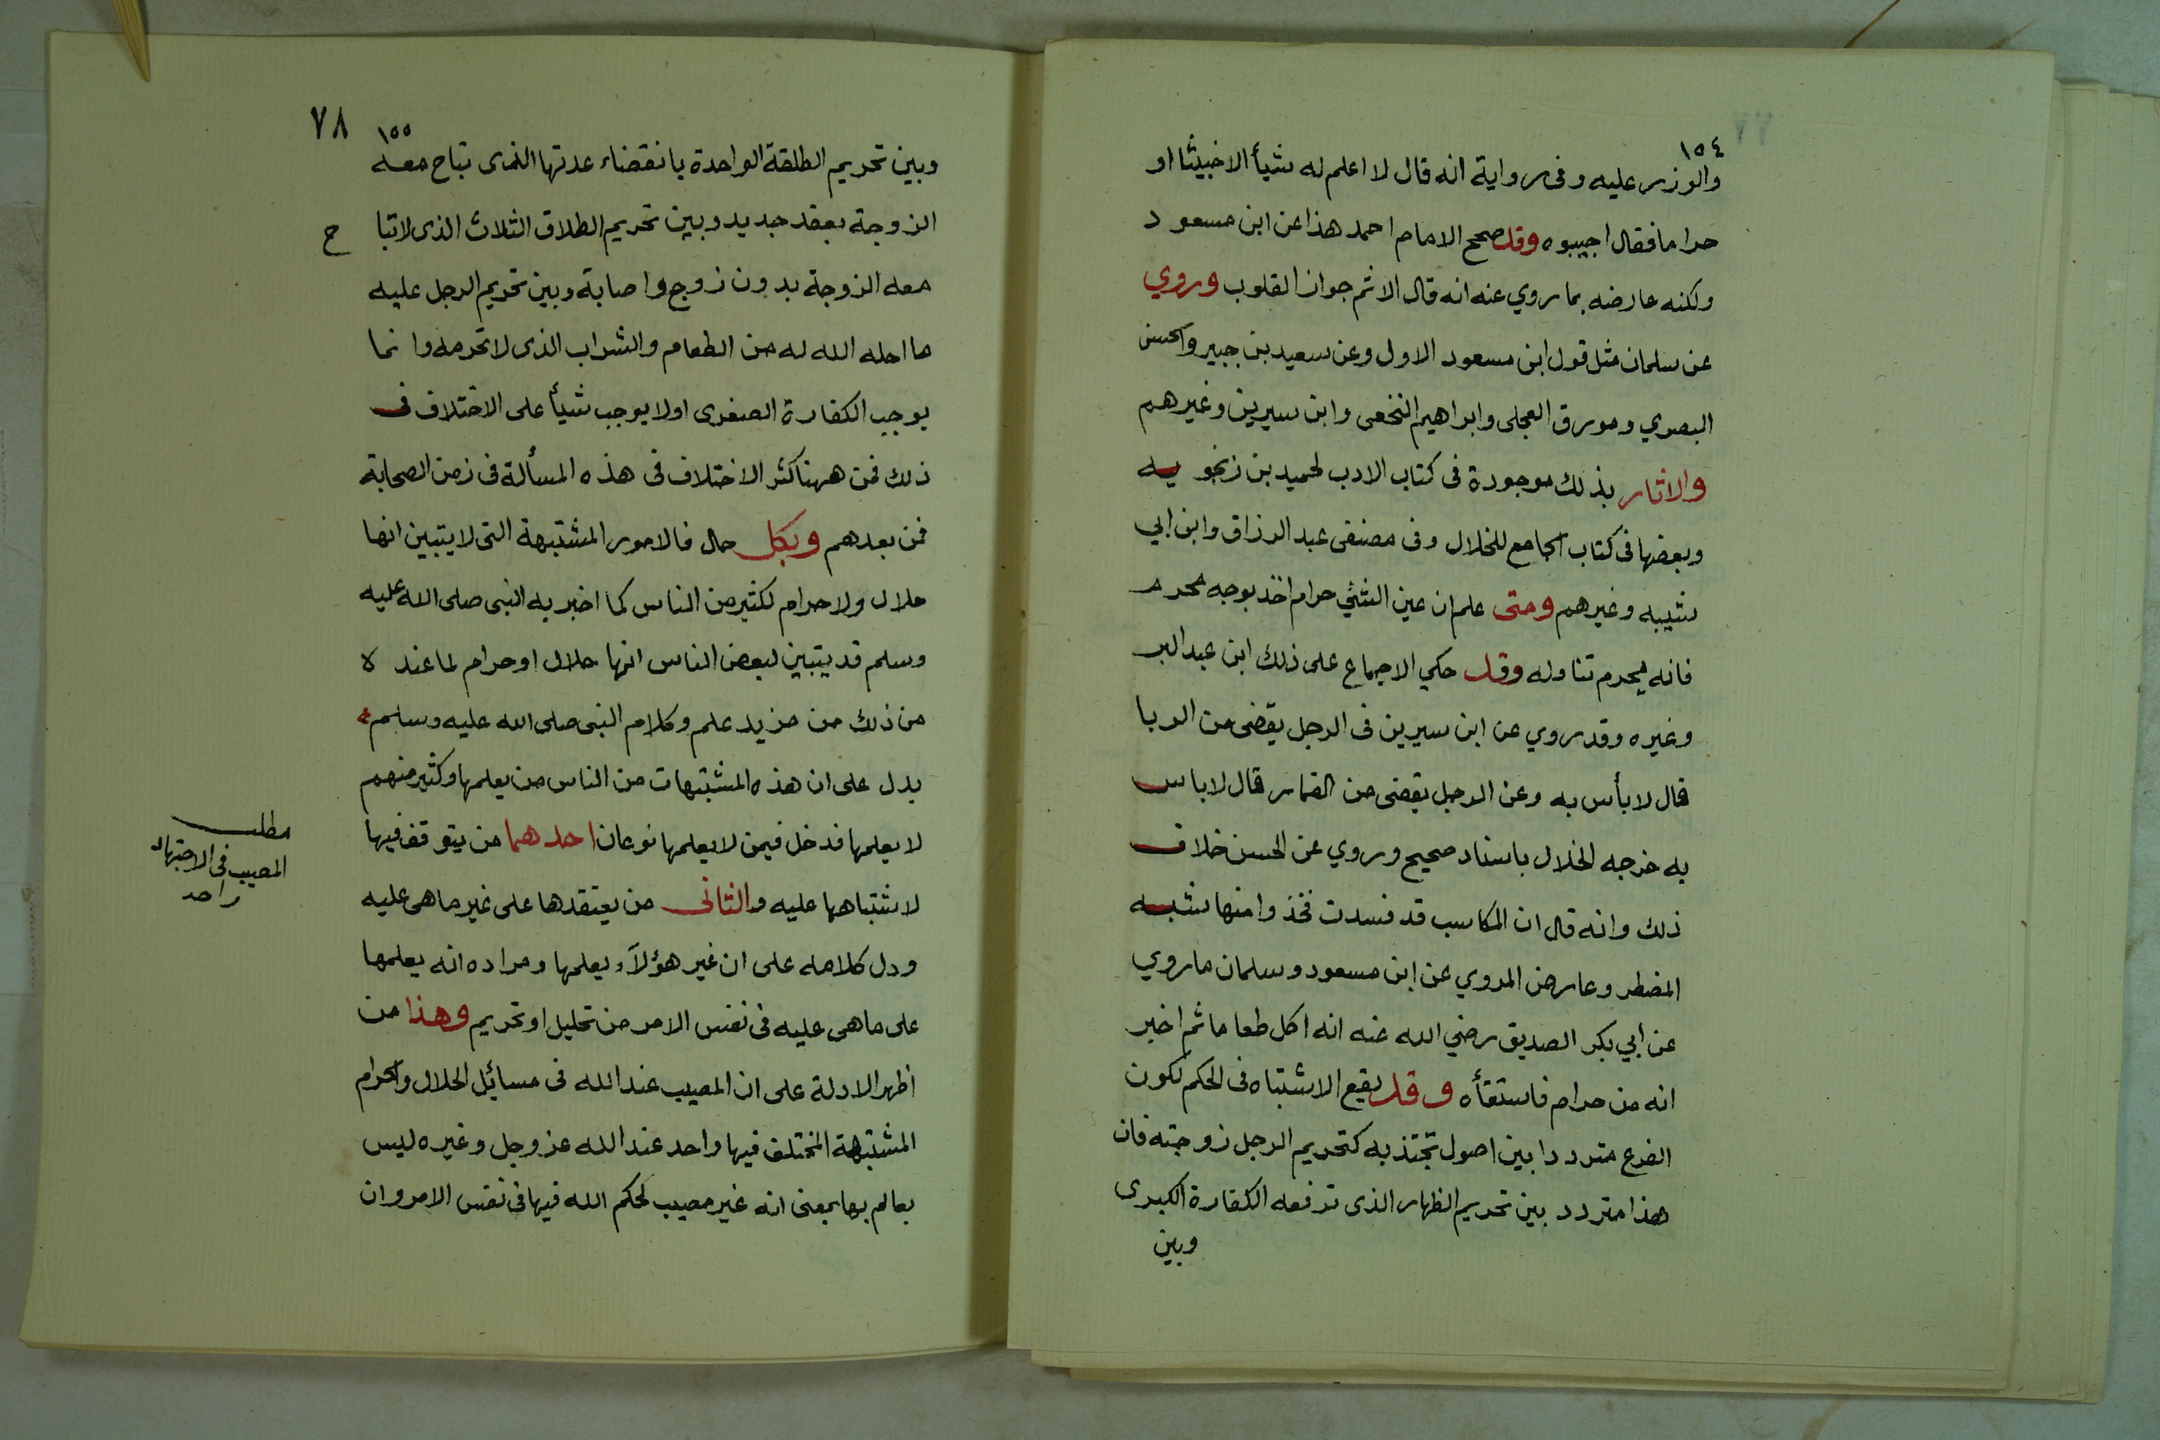 ١٥٤
والوزر عليه وفى رواية انه قال لا اعلم له شيأ الا خبيثا او
حراما فقال اجيبوه وقد صحح الامام احمد هذا عن ابن مسعود
ولكنه عارضه بما روي عنه انه قال الاثم جواز القلوب وروي
عن سلمان مثل قول ابن مسعود الاول وعن سعيد بن جبير والحسن
البصري ومورق العجلى وابراهيم النخعى وابن سيرين وغيرهم
والاثار بذلك موجودة فى كتاب الادب لحميد بن زنجويه
وبعضها فى كتاب الجامع للخلال وفى مصنفى عبد الرزاق وابن ابي
شيبه وغيرهم ومتى علم ان عين الشئ حرام اخذ بوجه محرم
فانه يحرم تناوله وقد حكي الاجماع على ذلك ابن عبد البر
وغيره وقد روي عن ابن سيرين فى الرجل يقضى من الربا
قال لا بأس به وعن الرجل يقضى من القمار قال لا باس
به خرجه الخلال باسناد صحيح وروي عن الحسن خلاف
ذلك وانه قال ان المكاسب قد فسدت فخذ وامنها شبه
المضطر وعارض المروي عن ابن مسعود وسلمان ما روي
عن ابي بكر الصديق رضي الله عنه انه اكل طعاما ثم اخبر
انه من حرام فاستقأه وقد يقع الاشتباه فى الحكم لكون
الفرع مترددا بين اصول تجتذبه كتحريم الرجل زوجته فان
هذا متردد بين تحريم الظهار الذى ترفعه الكفارة الكبرى
وبين
٧٨
١٥٥
وبين تحريم الطلقة الواحدة بانقضاء عدتها الذى تباح معه
الزوجة بعقد جديد وبين تحريم الطلاق الثلاث الذى لا تباح
معه الزوجة بدون زوج واصابة وبين تحريم الرجل عليه
ما احله الله له من الطعام والشراب الذى لا تحرمه وانما
يوجب الكفارة الصغرى اولا يوجب شيأ على الاختلاف فى
ذلك فمن ههنا كثر الاختلاف فى هذه المسألة فى زمن الصحابة
فمن بعدهم وبكل حال فالامور المشتبهة التى لا يتبين انها
حلال ولا حرام لكثير من الناس كما اخبر به النبى صلى الله عليه
وسلم قد يتبين لبعض الناس انها حلال او حرام لما عنده
من ذلك من مزيد علم وكلام النبى صلى الله عليه وسلم
يدل على ان هذه المشتبهات من الناس من يعلمها وكثير منهم
لا يعلمها فدخل فيمن لا يعلمها نوعان احدهما من يتوقف فيها
لاشتباهها عليه والثانى من يعتقدها على غير ما هى عليه
ودل كلامه على ان غير هؤلآء يعلمها ومراده انه يعلمها
على ما هى عليه فى نفس الامر من تحليل او تحريم وهذا من
اظهر الادلة على ان المصيب عند الله فى مسائل الحلال والحرام
المشتبهة المختلف فيها واحد عند الله عز وجل وغيره ليس
بعالم بها بمعنى انه غير مصيب لحكم الله فيها فى نفس الامر وان
مطلب
المصيب فى الاجتهاد
واحد